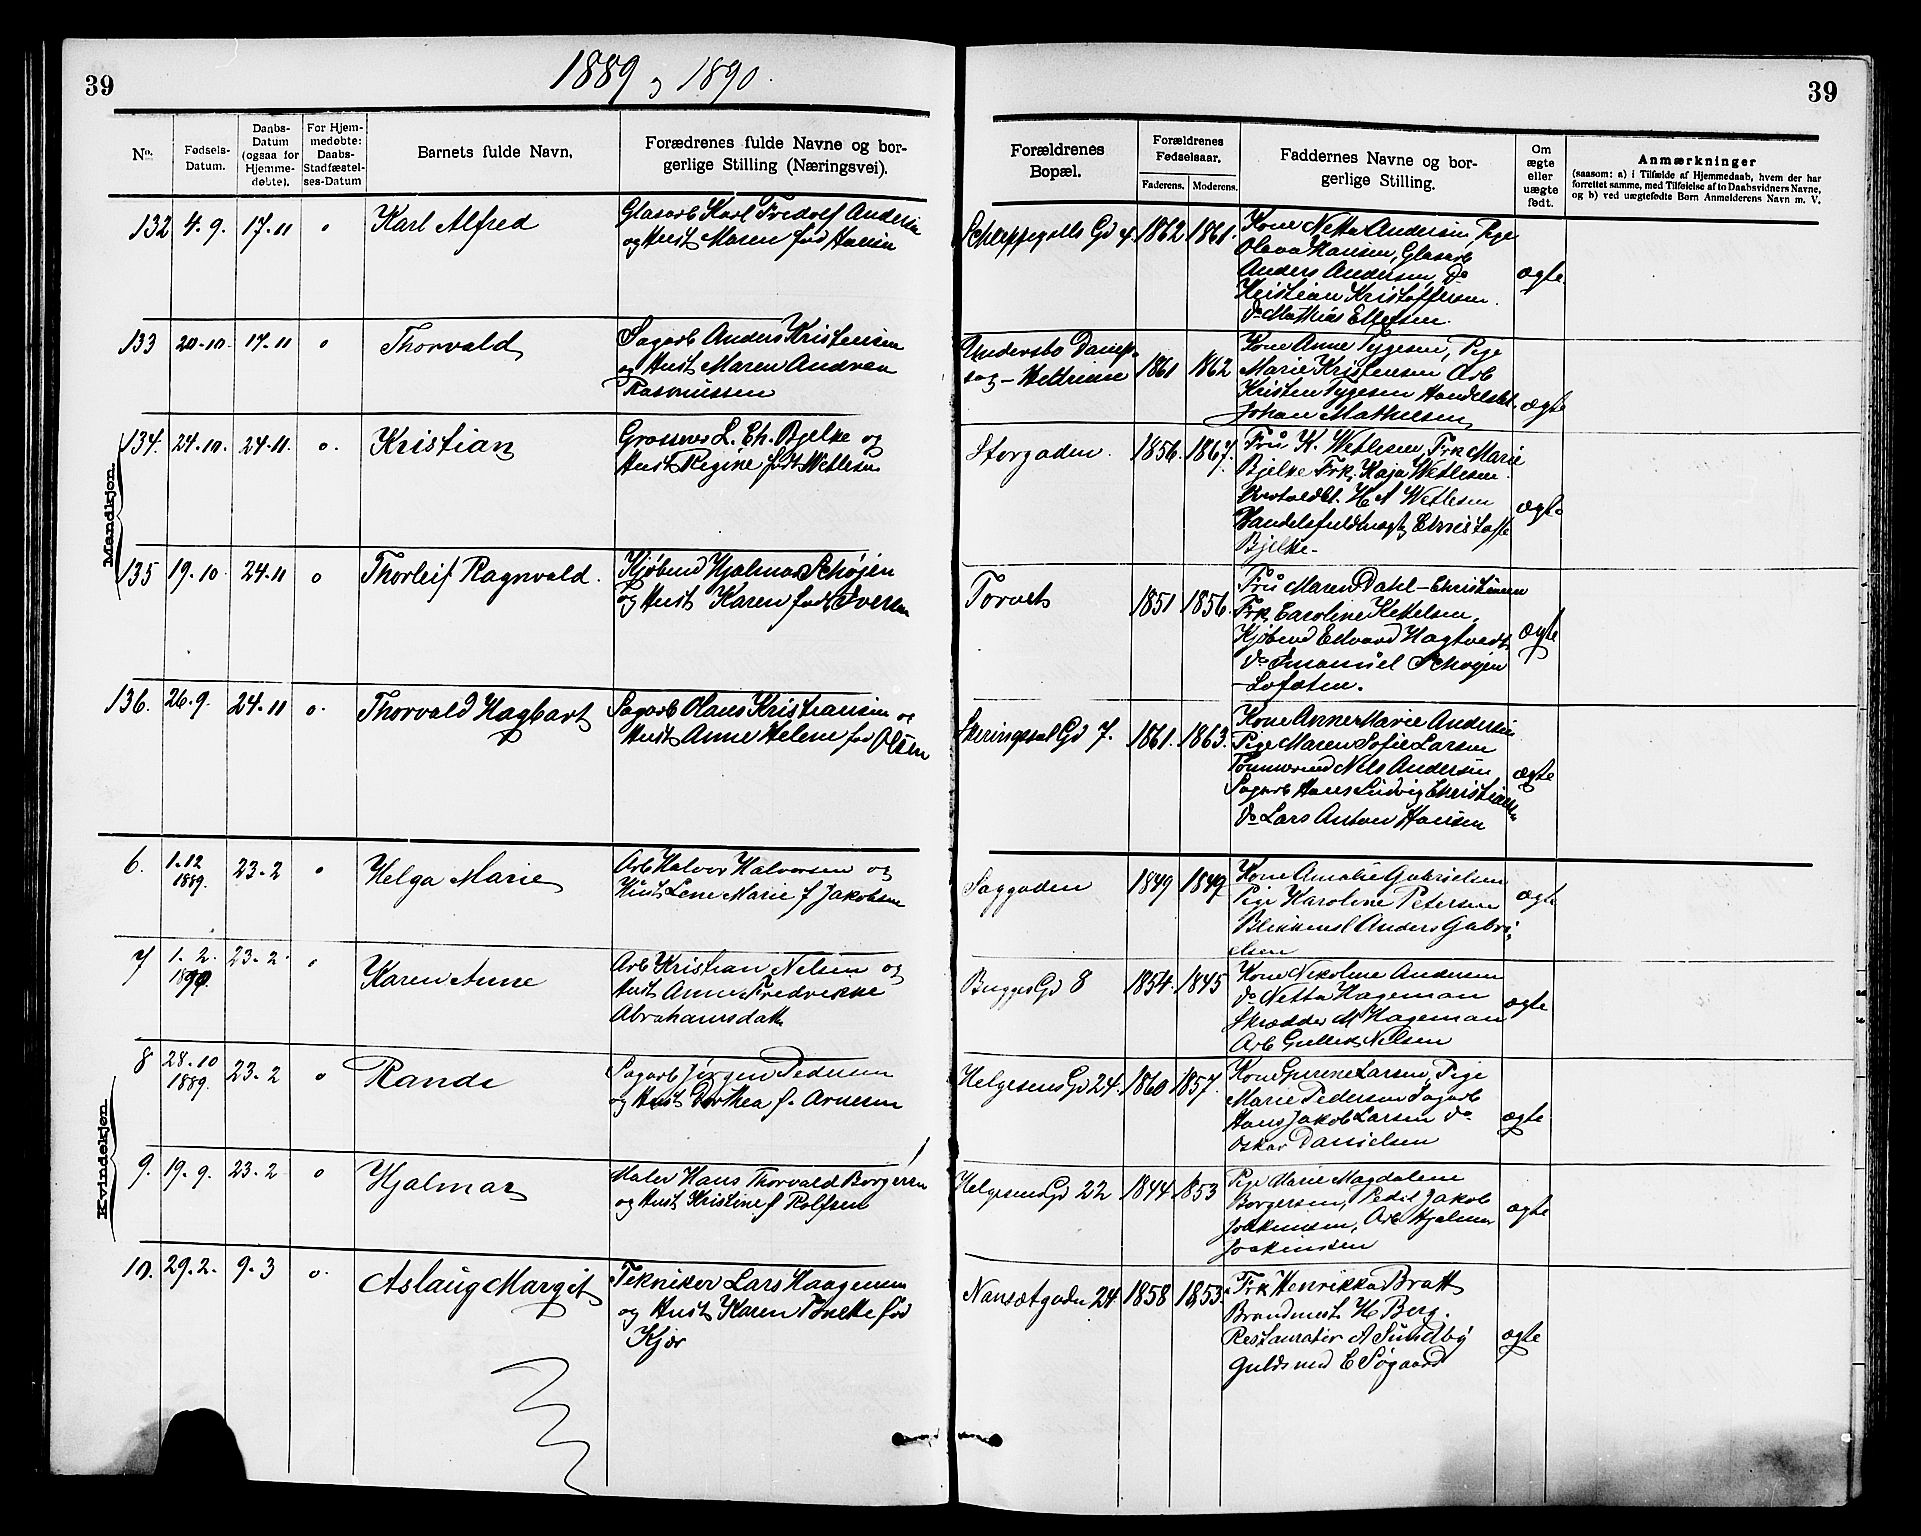 39
1889 og 1890.
39
No.
Fødsels-
Datum.
Daabs-
Datum
(ogsaa for
Hjemme-
døbte).
For Hjem-
medøbte:
Daabs-
Stadfæstel-
ses-Datum
Barnets fulde Navn.
Forædrenes fulde Navne og bor-
gerlige Stilling (Næringsvei).
Forældrenes
Bopæl.
Forældrenes
Fødselsaar.
Faderens. Moderens.
Faddernes Navne og bor-
gerlige Stilling.
Om
ægte
eller
uægte
født.
Anmærkninger
(saasom: a) i Tilfælde af Hjemmedaab, hvem der har
forrettet samme, med Tilføielse af to Daabsvidners Navne,
og b) ved uægtefødte Børn Anmelderens Navn m. V.
Mandkjøn
132 4.9. 17.11 o Karl Alfred
Glasarb Karl Fredolf Andersen
og Hust Maren fød Hansen
Schleppegrells Gd 4 1862 1861.
Kone Netta Andersen, Pige
Olava Hansen, Glasarb
Anders Andersen, Do
Kristian Kristoffersen.
Do Mathias Ellefsen.
ægte.
133 20.10. 17.11 o Thorvald
Sagarb Anders Kristensen
og Hust Maren Andrea
Rasmussen
Damp-
sag - 1861 1862
Kone Anne Tygesen, Pige
Marie Kristensen Arb
Kristen Tygesen Handelsbet.
Johan Mathisen
ægte
134. 24.10. 24.11. o. Kristian
Grosserer L. Ch. Bjelke og
Hust Regine født Wetlesen
Storgaden. 1856. 1867.
Fru K. Wetlesen, Frk Marie
Bjelke Frk, Kaja Wetlesen.
H A Wetlesen
Handelsfuldmægt Christoffe
Bjelke-
ægte
135 19.10. 24.11 o Thorleif Ragnvald.
Kjøbmd Hjalmar Schøjen
og Hust Karen født Iversen
Torvet 1851 1856.
Fru Maren Dahl-Christensen
Frk, Caroline Kettelsen,
Kjøbmd Edvard Hagtvedt,
Do Emanuel Schøjen
-Lofoten.
ægte
136. 26.9. 24.11 o. Thorvald Hagbart
Sagarb Olaus Kristiansen og
Hust Anne Helene fød Olsen
Skiringssal Gd 7. 1861. 1863.
Kone Anne Marie Andersen
Pige Maren Sofie Larsen
Tømmermd Nils Andersen
Sagarb Hans Ludvig Christiansen
Do Lars Anton Hansen
ægte
Kvindekjøn
6. 1.12
1889. 23.2 o Helga Marie
Arb Halvor Halvorsen og
Hust Lene Marie f Jakobsen
Saggaden 1849 1849
Kone Amalie Gabrielsen
Pige Karoline Petersen
Blikkensl Anders Gabri-
elsen
ægte
7 1.2.
1890. 23.2. o Karen Anne
Arb Kristian Nelsen og
Hust Anne Fredrikke
Abrahamsdatt
Bugges Gd 8 1854. 1845
Kone Nikoline Andersen
Do Netta Hageman
Skrædder M Hageman
Arb Gullik Nelsen
ægte
8 28.10
1889. 23.2 o Randi
Sagarb Jørgen Pedersen
og Hust Dorthea f. Arnesen
Helgesens Gd 24. 1860 1857.
Kone Larsen, Pige
Marie Pedersen Sagarb
Hans Jakob Larsen Do
Oskar Danielsen
ægte
9. 19.9. 23.2 o Hjalmar
Maler Hans Thorvald Borgersen
og Hust Kristine f Rolfsen
Helgesens Gd 22 1844. 1853
Pige Marie Magdalene
Borgersen, Jakob
Joakimsen, Arb Hjalmar
Joakimsen
ægte
10. 29.2. 9.3 o. Aslaug Margit
Tekniker Lars Haagensen
og Hust Karen Tonette fød
Kjær
Nansetgaden 24 1858 1853.
Frk Henrikka Bratt
Brandmest H Berg.
Restauratør A Sundby
Guldsmd C Søgaard
ægte